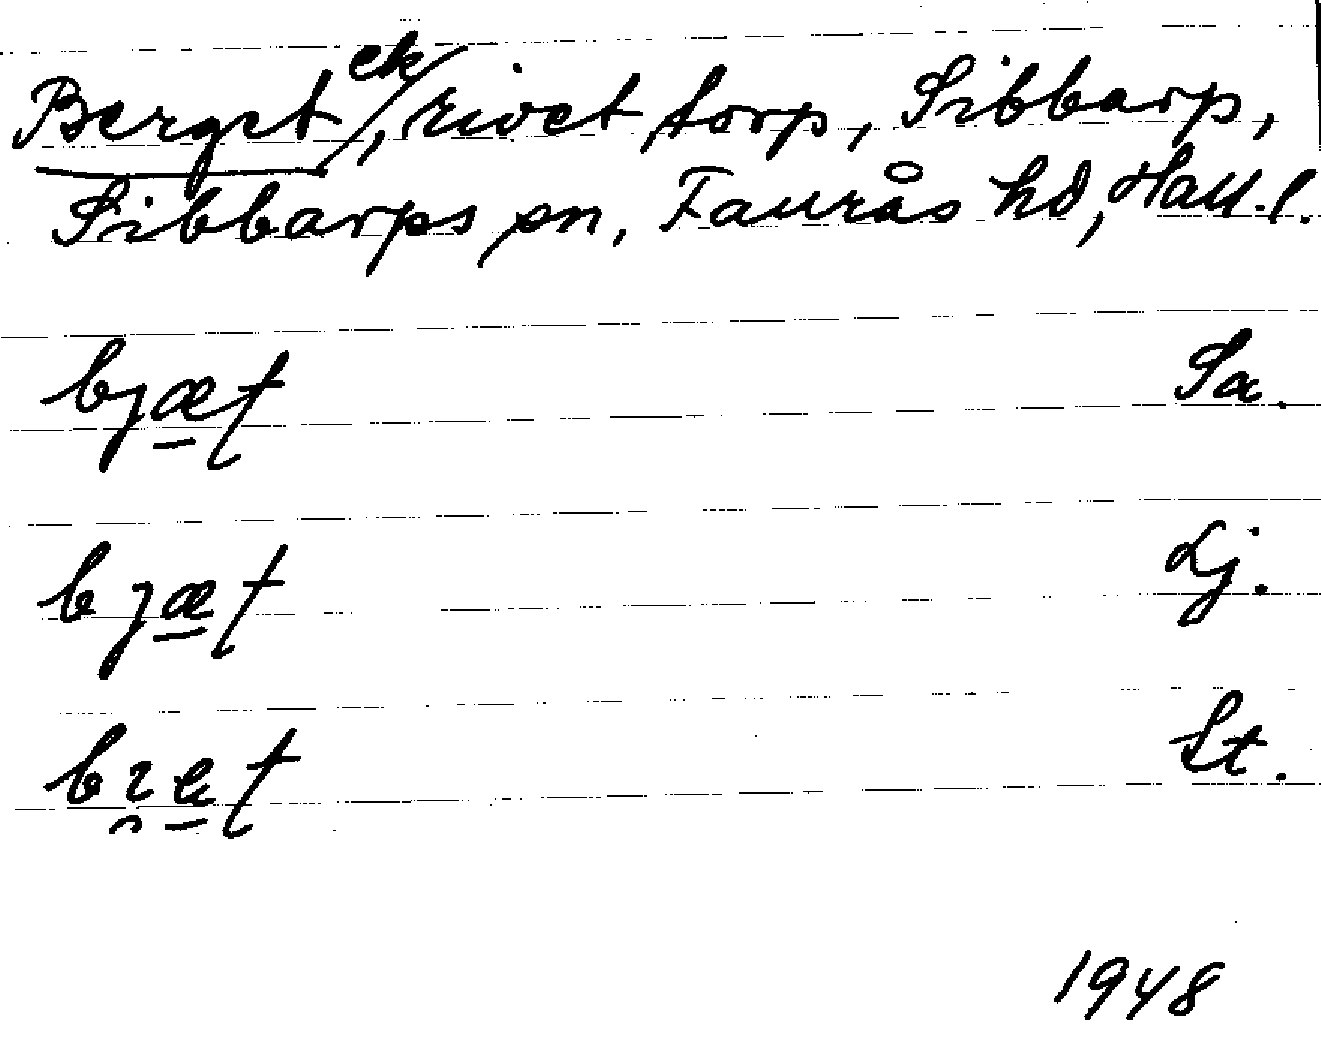 Berget ek/, rivet torp, Sibbarp,
Sibbarps sn, Faurås hd, Hall. l.
bjæt Sa.
bjæt Lj.
St.
1948